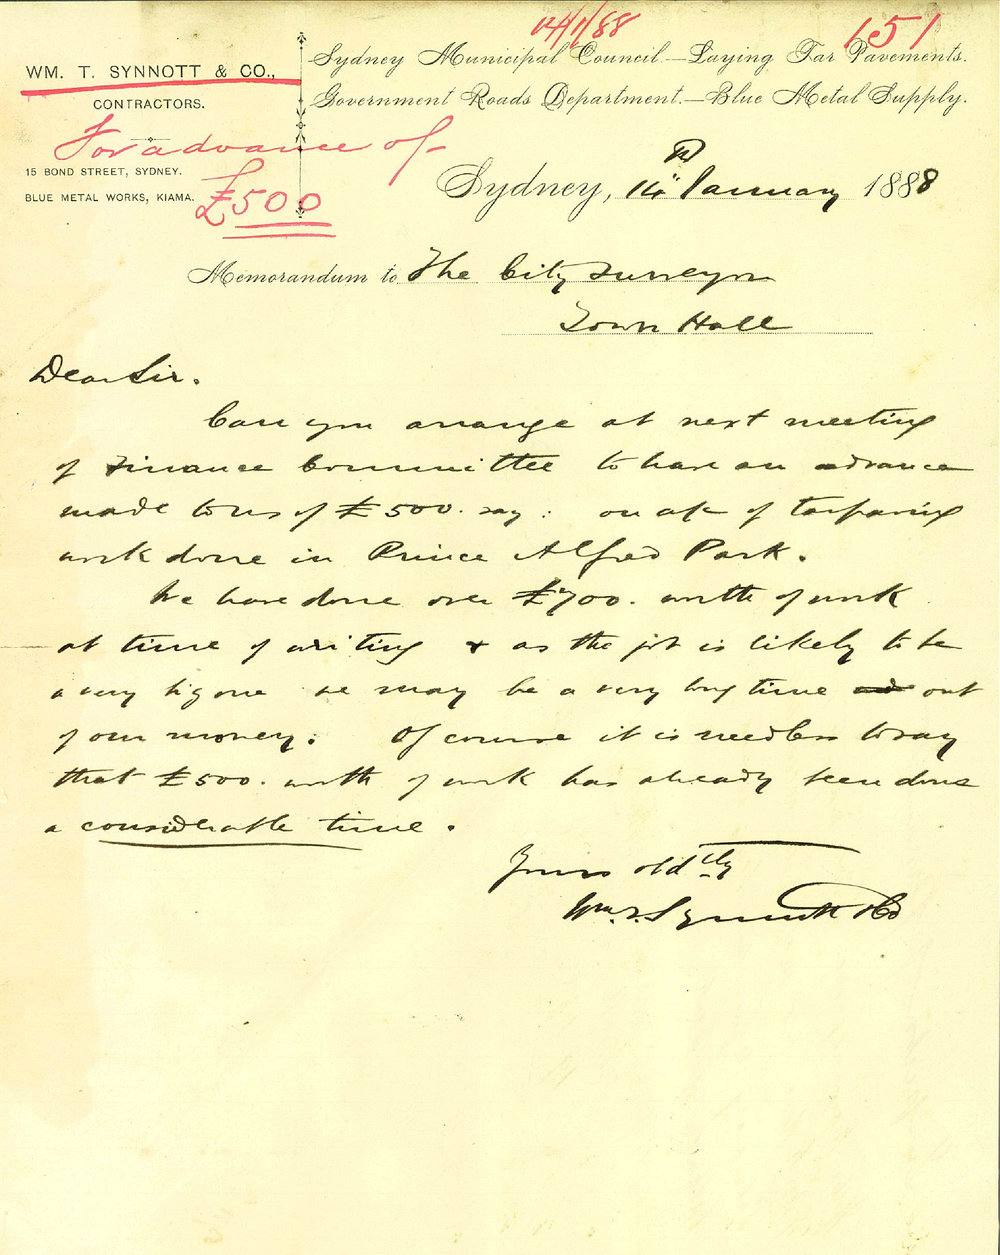 14/1/88
151
WM. T. SYNNOTT & CO.,
CONTRACTORS.
15 BOND STREET, SYDNEY.
BLUE METAL WORKS, KIAMA.
For advance of-
£500
Sydney Municipal Council.—Laying Tar Pavements.
Government Roads Department.—Blue Metal Supply.
Sydney, 14th January 1888
Memorandum to The City Surveyor
Town Hall
Dear Sir.
Can you arrange at next meeting
of Finance Committee to have an advance
made to us of £500. say: on a/c of tarpaving
work done in Prince Alfred Park.
We have done over £700. worth of work
at time of writing & as the job is likely to be
a very big one we may be a very long time out
of our money. Of course it is needless to say
that £500. worth of work has already been done
a considerable time.
Yours obdtly
Wm. T. Synnott & Co